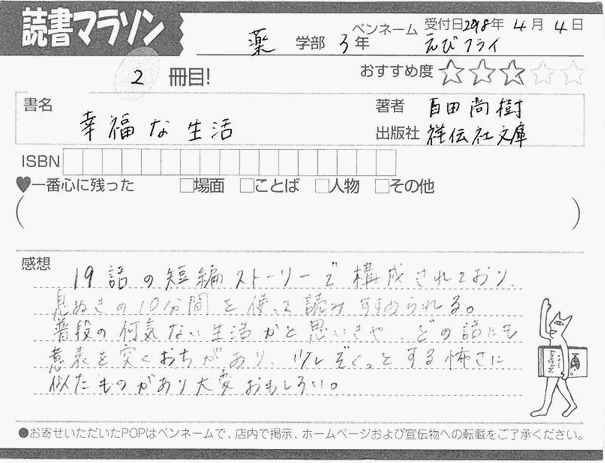 読書マラソン
薬 学部 3年
ペンネーム 受付日2018年4月4日
えびフライ
2 冊目!
おすすめ度 ☆☆☆☆☆
書名 幸福な生活
著者 百田尚樹
出版社 祥伝社文庫
ISBN
♥一番心に残った □場面 □ことば □人物 □その他
( )
感想
19話の短編ストーリーで構成されており、
息ぬきの10分間を使って読みすすめられる。
普段の何気ない生活かと思いきや、どの話にも
意表を突くおちがあり、少しぞくっとする怖さに
似たものがあり大変おもしろい。
●お寄せいただいたPOPはペンネームで、店内で掲示、ホームページおよび宣伝物への転載をご了承ください。